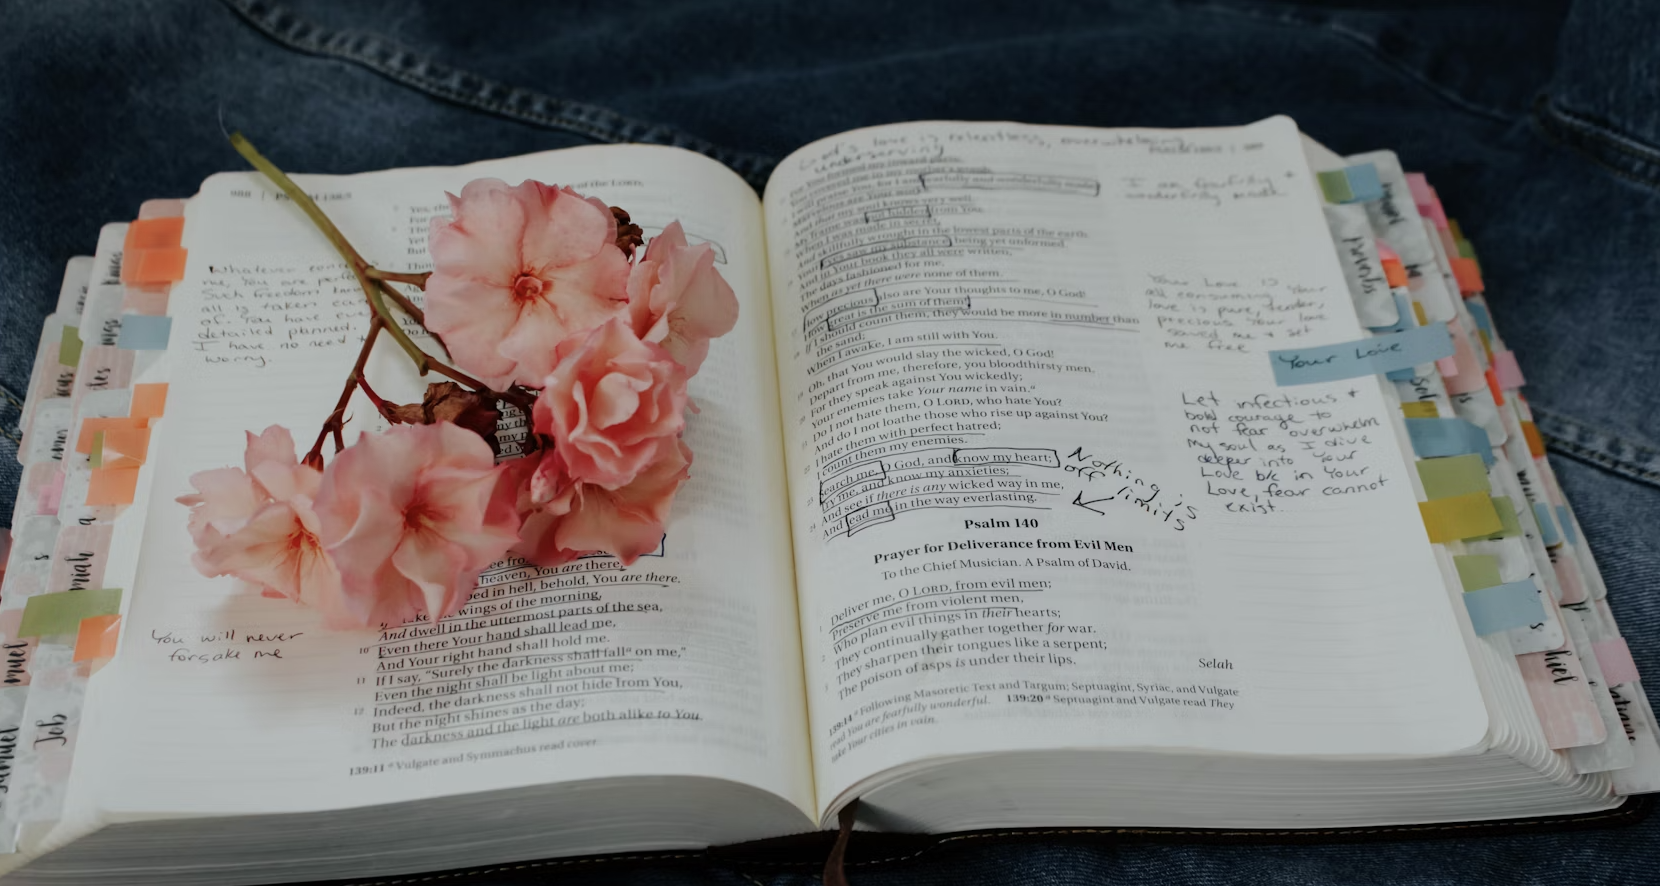 988 | PSALM 138:5
of the LORD,
Yes, the
For
Yet
But
Whatever
me, You are
Such freedom
all is taken care
of. You have
detailed planned.
I have no need
worry.
heaven, You are there;
in hell, behold, You are there.
wings of the morning,
And dwell in the uttermost parts of the sea,
10 Even there Your hand shall lead me,
And Your right hand shall hold me.
11 If I say, "Surely the darkness shall fall a on me,"
Even the night shall be light about me;
12 Indeed, the darkness shall not hide from You,
But the night shines as the day;
The darkness and the light are both alike to You.
139:11 a Vulgate and Symmachus read cover.
You will never
forsake me
God's love is relentless, overwhelming,
undeserving
For You formed my inward parts;
You covered me in my mother's womb.
I will praise You, for I am fearfully and wonderfully made;
Marvelous are Your works,
And that my soul knows very well.
My frame was not hidden from You,
When I was made in secret,
And skillfully wrought in the lowest parts of the earth.
Your eyes saw my substance, being yet unformed.
And in Your book they all were written,
The days fashioned for me,
When as yet there were none of them.
How precious also are Your thoughts to me, O God!
How great is the sum of them!
If I should count them, they would be more in number than
the sand;
When I awake, I am still with You.
Oh, that You would slay the wicked, O God!
Depart from me, therefore, you bloodthirsty men.
For they speak against You wickedly;
Your enemies take Your name in vain.
Do I not hate them, O LORD, who hate You?
And do I not loathe those who rise up against You?
I hate them with perfect hatred;
I count them my enemies.
Search me, O God, and know my heart;
Try me, and know my anxieties;
And see if there is any wicked way in me,
And lead me in the way everlasting.
Psalm 140
Prayer for Deliverance from Evil Men
To the Chief Musician. A Psalm of David.
Deliver me, O LORD, from evil men;
Preserve me from violent men,
Who plan evil things in their hearts;
They continually gather together for war.
They sharpen their tongues like a serpent;
The poison of asps is under their lips.
Selah
139:14 a Following Masoretic Text and Targum; Septuagint, Syriac, and Vulgate
read You are fearfully wonderful. 139:20 a Septuagint and Vulgate read They
take Your cities in vain.
I am fearfully +
wonderfully made
Your Love is
all consuming. Your
love is pure, tender,
precious. Your love
saved me + set
me free
Your Love
Let infectious +
bold courage to
not fear overwhelm
my soul as I dive
deeper into Your
Love b/c in Your
Love, fear cannot
exist.
Nothing is
off limits
Job
Proverbs